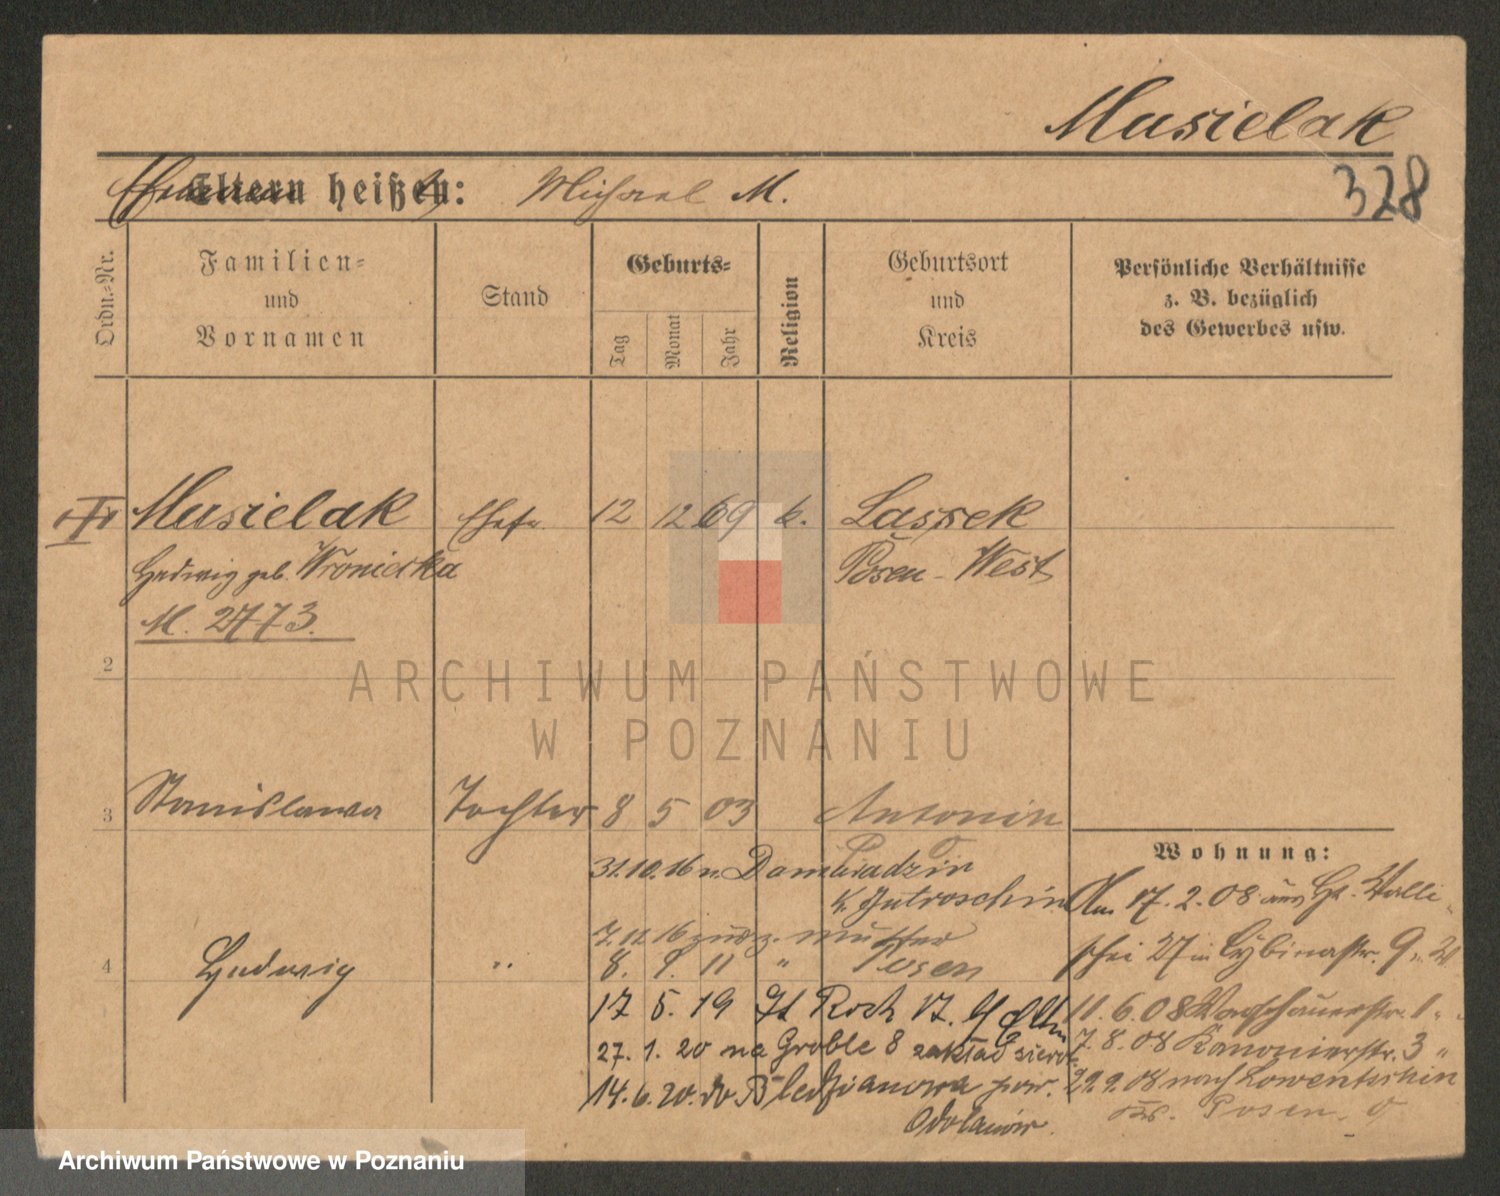 Musielak
328
Eltern heißen: Michael M.
Ordn.-Nr.
Familien-
und
Vornamen
Stand
Geburts-
Tag
Monat
Jahr
Religion
Geburtsort
und
Kreis
Persönliche Verhältnisse
z. B. bezüglich
des Gewerbes usw.
Musielak Ehefr. 12 12 69 k. Lassek
Hedwig geb. Wroniecka Posen-West
M. 2773.
2
ARCHIWUM PAŃSTWOWE
W POZNANIU
3 Stanislawa Tochter 8 5 03 Antonin
Wohnung:
31.10.16 n. Dombiadzin
K. Jutroschin
Am 17.2.08 aus
7.11.16 zur z. Mutter
27 in Cybinastr. 9
4 Hedwig " 8. 9. 11 " Posen
17 5. 19 St Roch
11.6.08 Warschauerstr. 1
27. 1. 20 na Groble 8 zakład sierot
7.8.08 Kanonierstr. 3
14. 6. 20. do Bledzianowa pow.
29.9.08 nach Lowentschin
Odolanów.
Posen. O
Archiwum Państwowe w Poznaniu